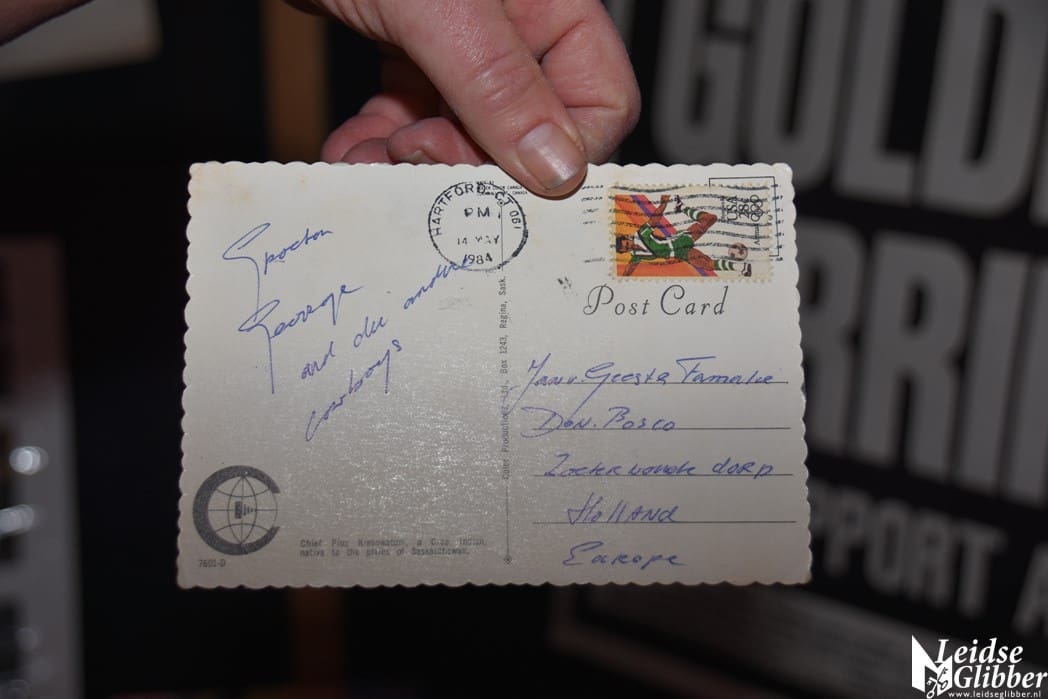 HARTFORD, CT 061
PM
14 MAY
1984
USA
28c
Post Card
George
and die andere
cowboys
Color Productions Ltd., Box 1243, Regina, Sask.
Jan v. Geest
Don. Bosco
dorp
Holland
Europe
Chief Pius Kiseewatum, a Cree Indian,
native to the plains of Saskatchewan.
7601-D
GOLD
PPORT A
Leidse
Glibber
www.leidseglibber.nl